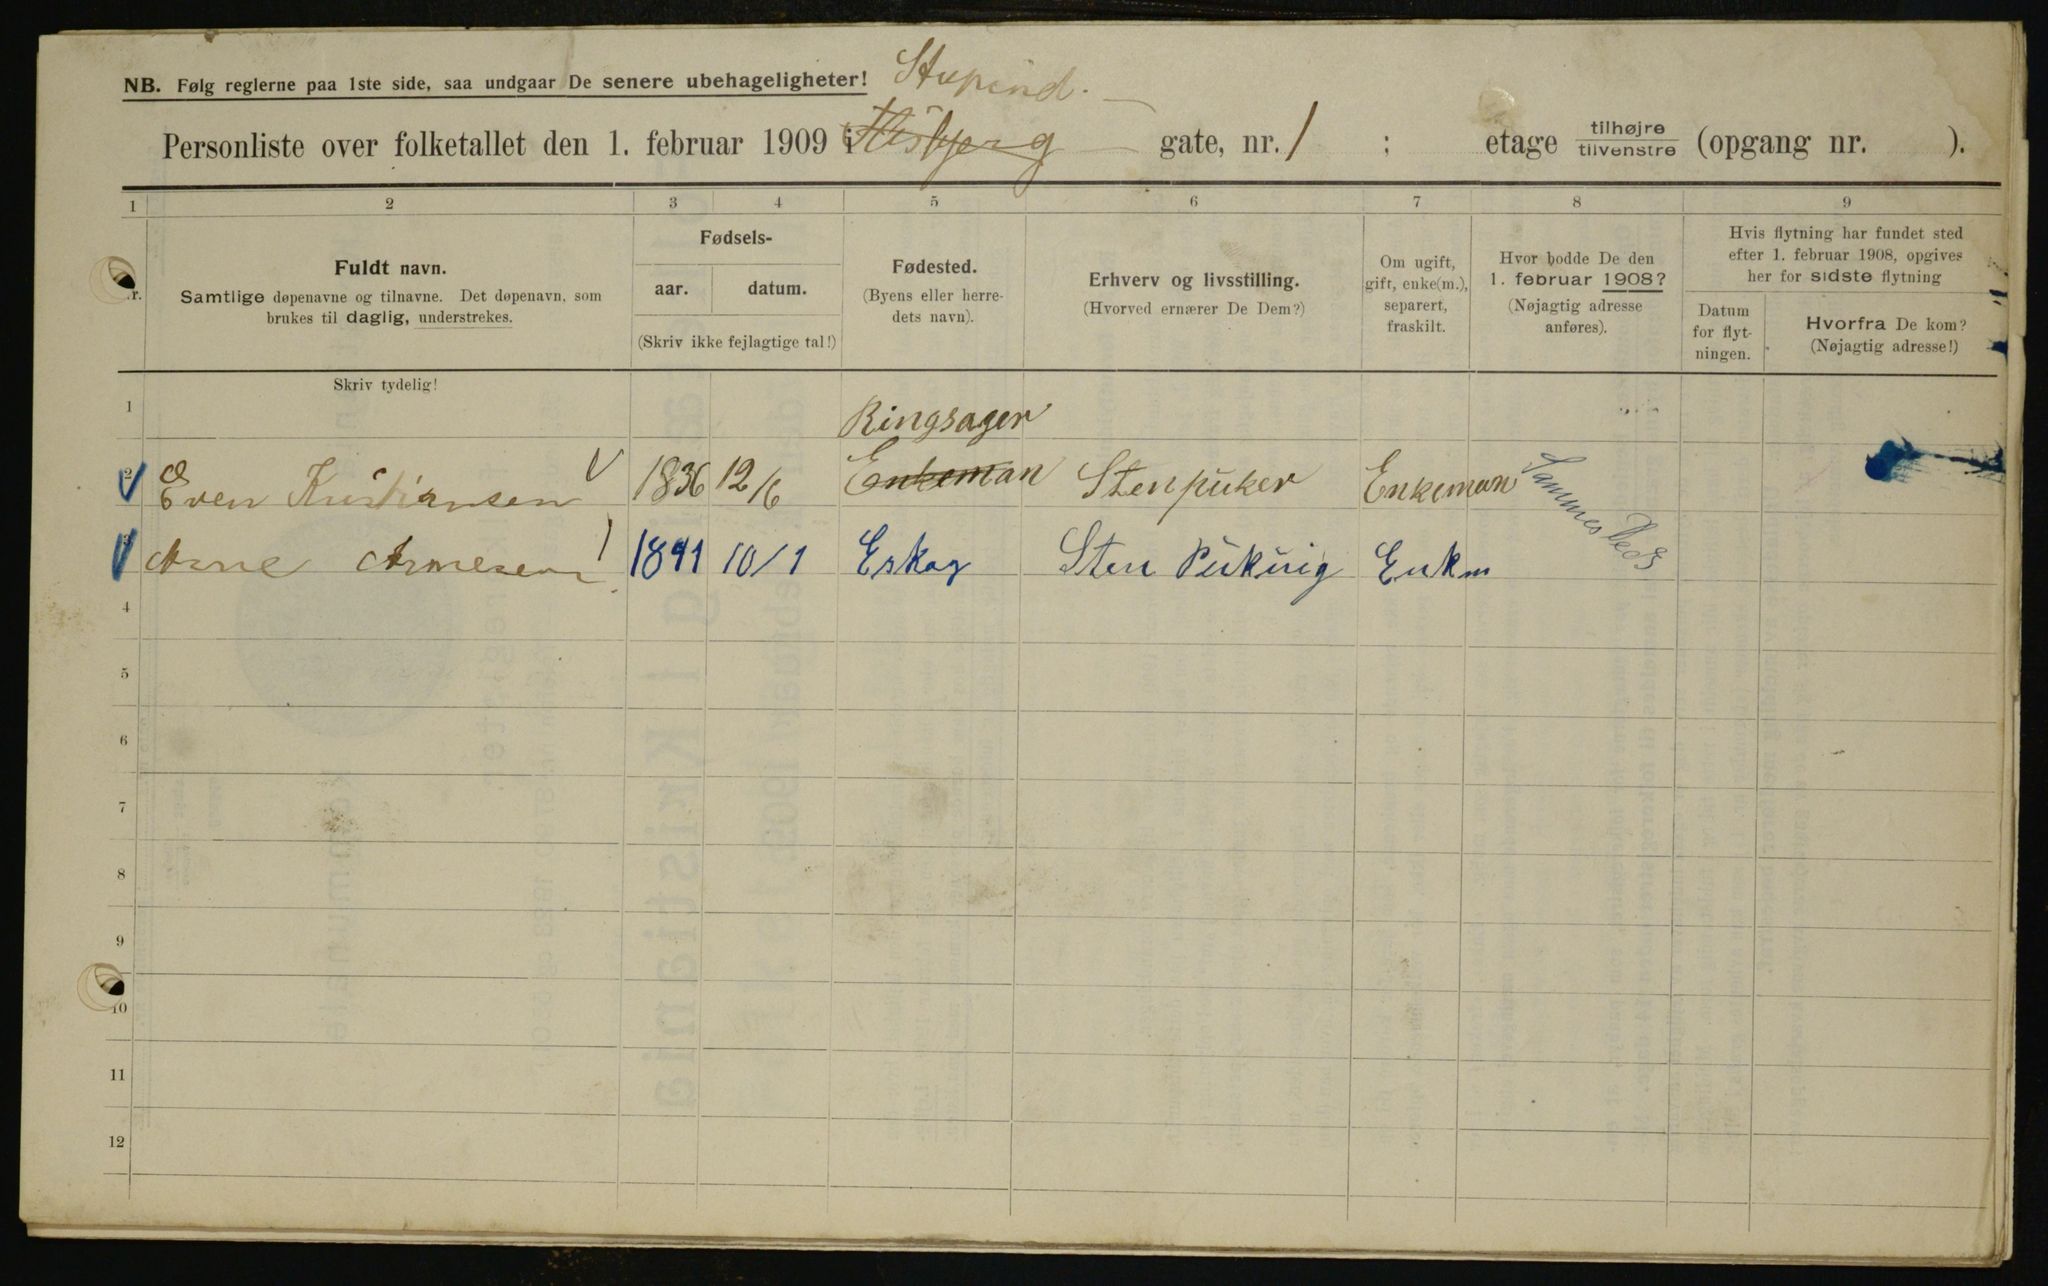 NB. Følg reglerne paa 1ste side, saa undgaar De senere ubehageligheter! Stupind.
Personliste over folketallet den 1. februar 1909 i Aasbjerg gate, nr. 1 ; etage tilhøjre tilvenstre (opgang nr. ).
1 2 3 4 5 6 7 8 9
Nr.
Fuldt navn.
Samtlige døpenavne og tilnavne. Det døpenavn, som
brukes til daglig, understrekes.
Fødsels-
aar. datum.
(Skriv ikke fejlagtige tal!)
Fødested.
(Byens eller herre-
dets navn).
Erhverv og livsstilling.
(Hvorved ernærer De Dem?)
Om ugift,
gift, enke(m.),
separert,
fraskilt.
Hvor bodde De den
1. februar 1908?
(Nøjagtig adresse
anføres).
Hvis flytning har fundet sted
efter 1. februar 1908, opgives
her for sidste flytning
Datum
for flyt-
ningen.
Hvorfra De kom?
(Nøjagtig adresse!)
Skriv tydelig!
1 Ringsager
2 Even Kristiansen 1836 12/6 Enkeman Stenpuker Enkeman Sammested
3 Arne Arnesen 1841 10/1 Eskog Sten Pukuig Enkm
4
5
6
7
8
9
10
11
12